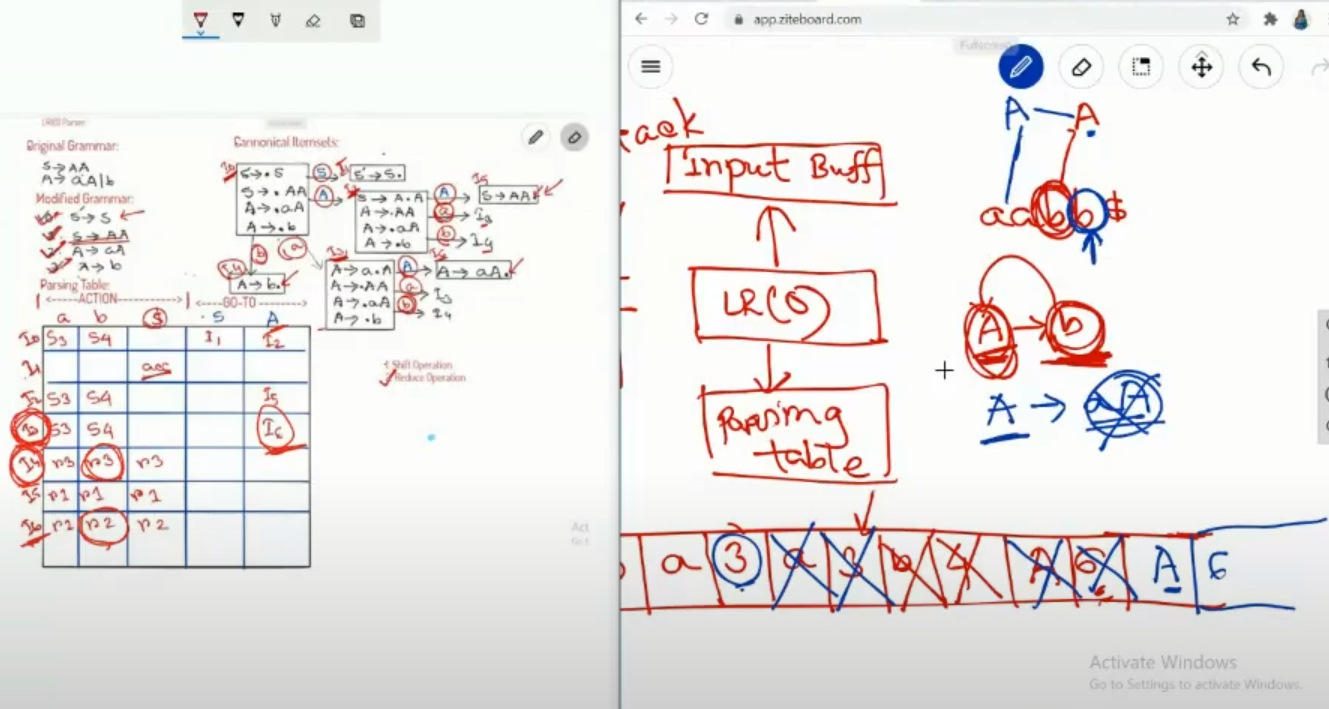 LR(0) Parser
Original Grammar:
S→AA
A→aA|b
Modified Grammar:
S'→S
S→AA
A→aA
A→b
Cannonical Itemsets:
I0
S'→.S
S→.AA
A→.aA
A→.b
S
I1
S'→S.
A
I2
S→A.A
A→.AA
A→.aA
A→.b
A
I5
S→AA.
a
I3
b
I4
b
a
I4
A→b.
I3
A→a.A
A→.AA
A→.aA
A→.b
A
I6
A→aA.
a
I3
b
I4
Parsing Table:
ACTION
GO-TO
a b $ S A
I0 S3 S4 I1 I2
I1 acc
I2 S3 S4 I5
I3 S3 S4 I6
I4 r3 r3 r3
I5 r1 r1 r1
I6 r2 r2 r2
1. Shift Operation
2. Reduce Operation
Act
app.ziteboard.com
Fullscreen
ack
Input Buff
LR(0)
Parsing
table
A A
aabb$
A→b
A→aA
a 3 a 3 b 4 A 6 A 6
Activate Windows
Go to Settings to activate Windows.